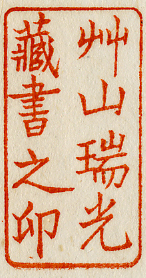 艸山瑞光
藏書之印